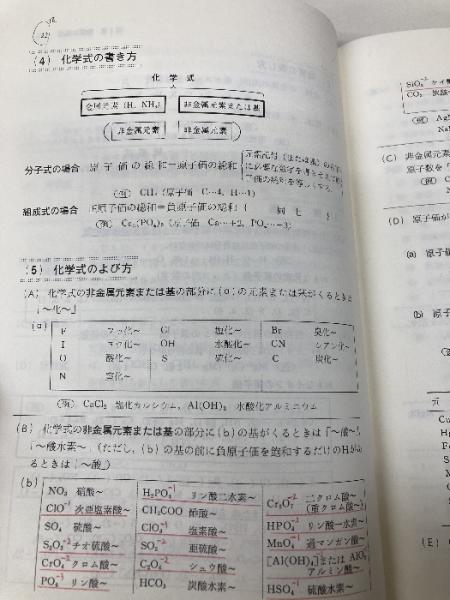 (4) 化学式の書き方
化学式
金属元素(H, NH₄) 非金属元素または基
非金属元素 非金属元素
分子式の場合 原子価の総和=原子価の総和
(例) CH₄ (原子価 C…4, H…1)
組成式の場合 正原子価の総和=負原子価の総和 ( 同上 )
(例) Ca₃(PO₄)₂ (原子価 Ca…+2, PO₄…-3)
(5) 化学式のよび方
(A) 化学式の非金属元素または基の部分に(a)の元素または基がくるときは
「〜化〜」
(a)
F フッ化〜 Cl 塩化〜 Br 臭化〜
I ヨウ化〜 OH 水酸化〜 CN シアン化〜
O 酸化〜 S 硫化〜 C 炭化〜
N 窒化〜
(例) CaCl₂ 塩化カルシウム, Al(OH)₃ 水酸化アルミニウム
(B) 化学式の非金属元素または基の部分に(b)の基がくるときは「〜酸〜」,
「〜酸水素〜」(ただし, (b)の基の前に負原子価を飽和するだけのHがあ
るときは「〜酸」)
(b)
NO₃ 硝酸〜 H₂PO₄⁻¹ リン酸二水素〜 Cr₂O₇⁻² 二クロム酸〜
(重クロム酸〜)
ClO⁻¹ 次亜塩素酸〜 CH₃COO 酢酸〜
SO₄ 硫酸〜 ClO₃⁻¹ 塩素酸〜 HPO₄⁻² リン酸一水素〜
S₂O₃⁻² チオ硫酸〜 SO₃⁻² 亜硫酸〜 MnO₄⁻¹ 過マンガン酸〜
CrO₄⁻² クロム酸〜 C₂O₄⁻² シュウ酸〜 [Al(OH)₄]または AlO₂
アルミン酸〜
PO₄⁻³ リン酸〜 HCO₃ 炭酸水素〜 HSO₄⁻¹ 硫酸水素〜
SiO₃⁻² ケイ
CO₃ 炭酸
(例)
(C) 非金属元素
原子数を
(例)
(D) 原子価が
(a) 原子価
(b) 原子
Cu
(E)